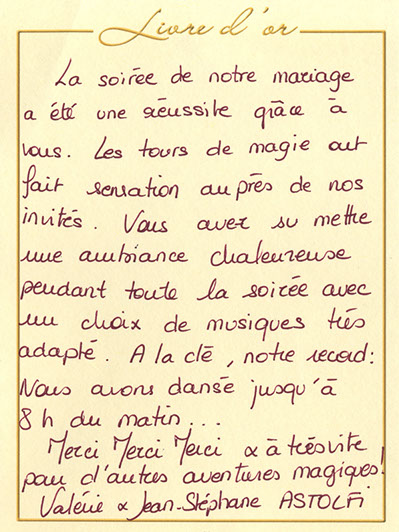 Livre d'or
La soirée de notre mariage
a été une réussite grâce à
vous. Les tours de magie ont
fait sensation auprès de nos
invités. Vous avez su mettre
une ambiance chaleureuse
pendant toute la soirée avec
un choix de musiques très
adapté. A la clé, notre record:
Nous avons dansé jusqu'à
8 h du matin...
Merci Merci Merci & à très vite
pour d'autres aventures magiques!
Valérie & Jean-Stéphane ASTOLFI